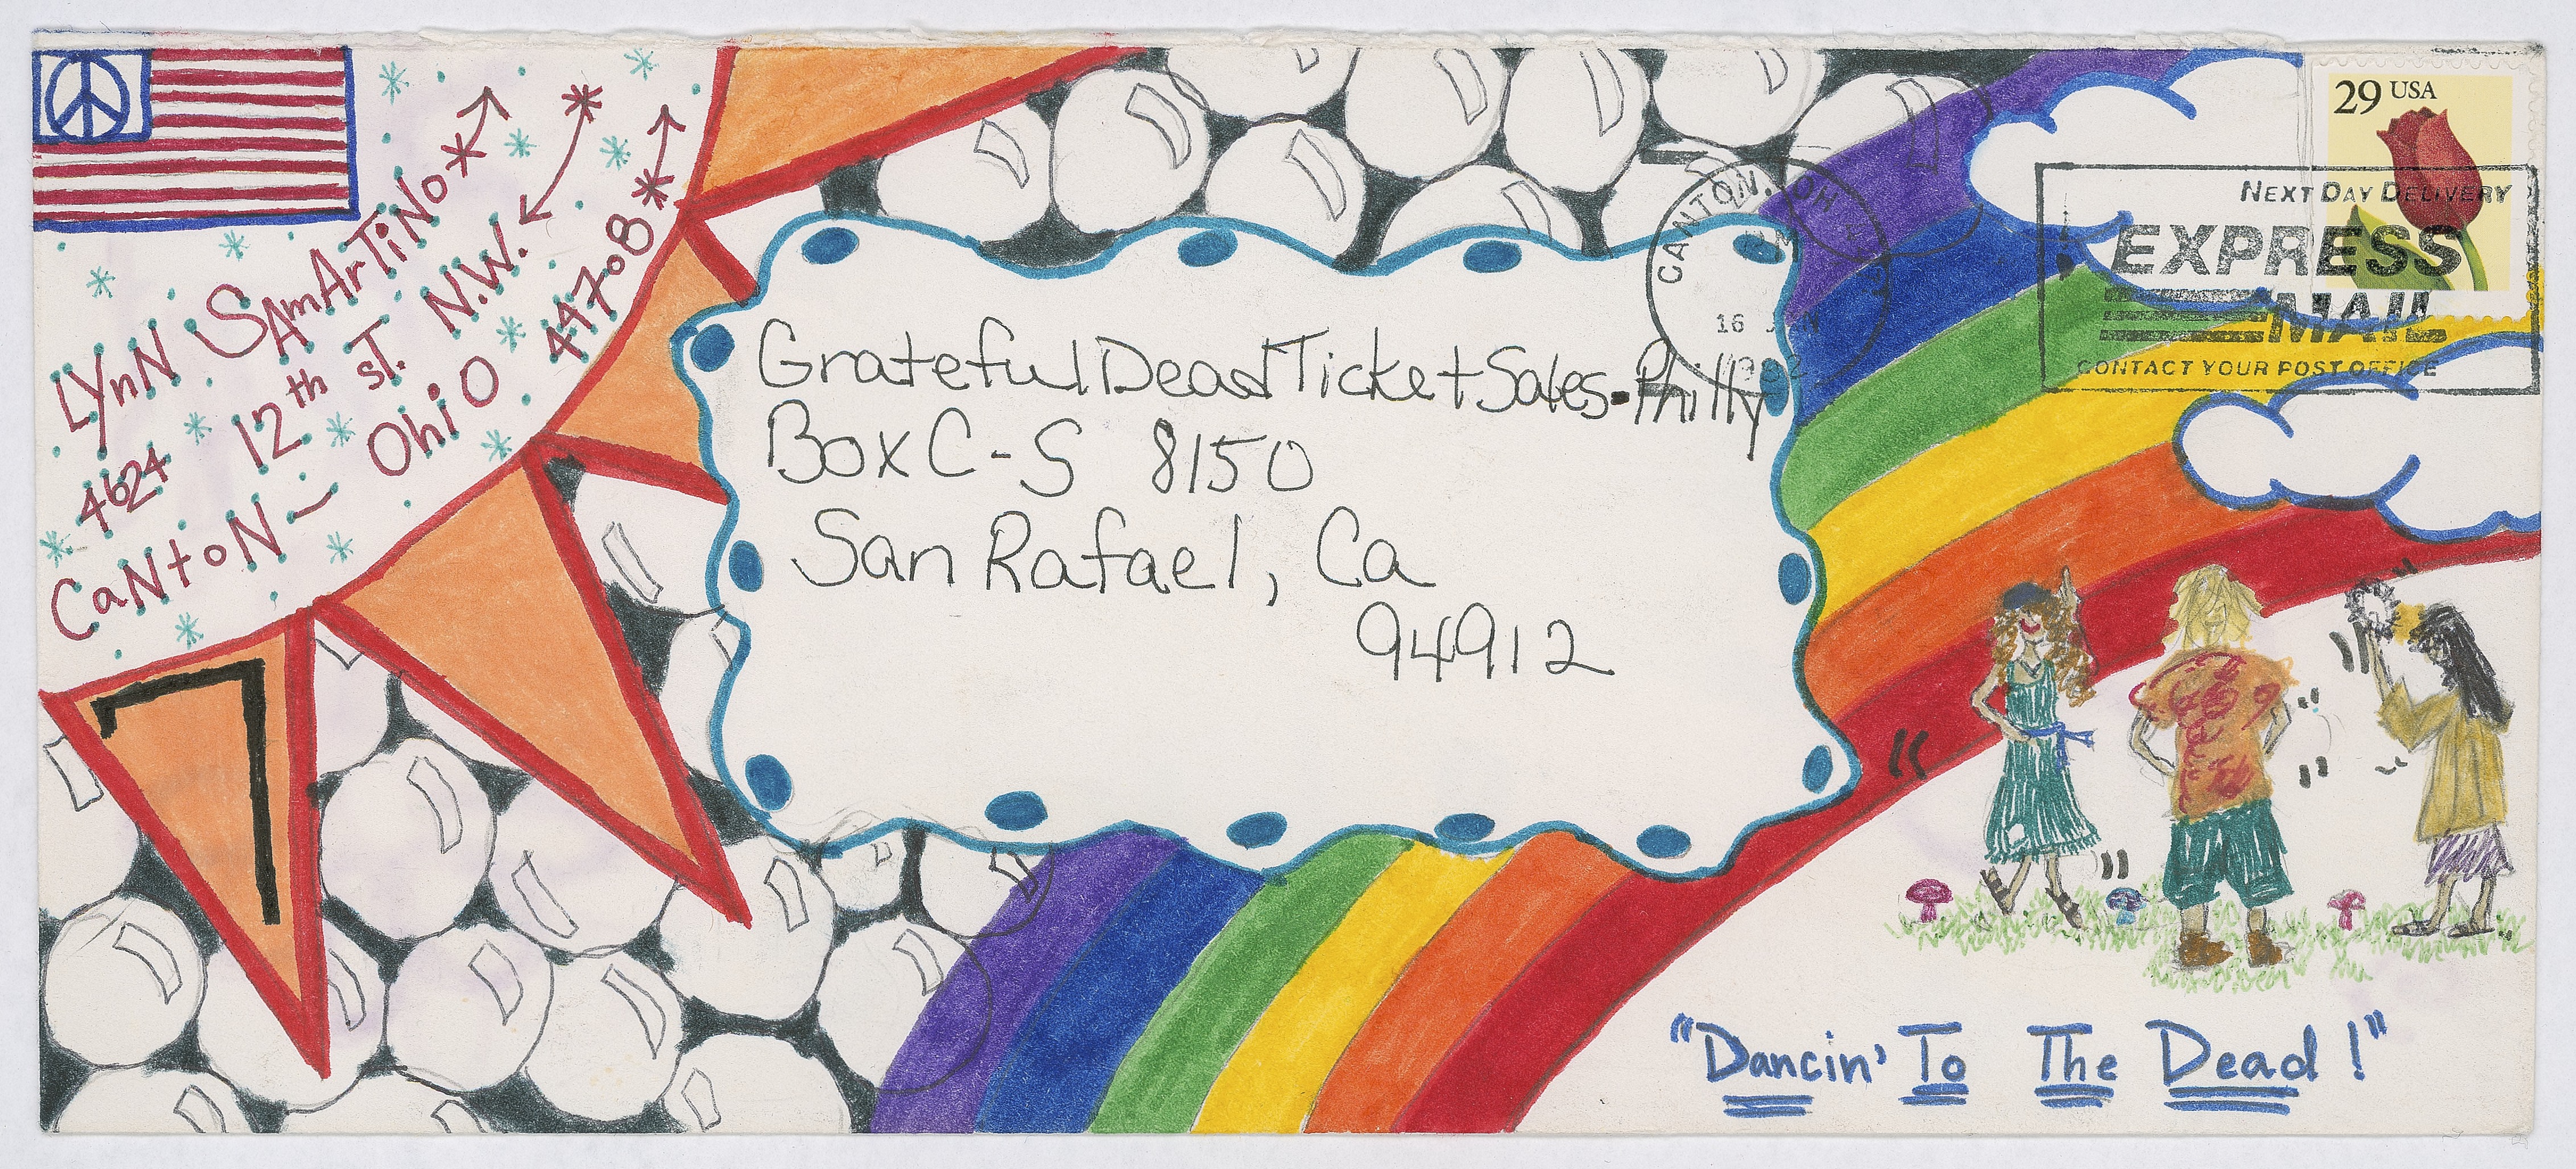 LYnN SAmArTiNo
4624 12th sT. N.W.
CaNtoN — OhiO 44708
7
Grateful Dead Ticket Sales - Philly
Box C-S 8150
San Rafael, Ca
94912
CANTON, OH
PM
16 JAN
1992
29 USA
NEXT DAY DELIVERY
EXPRESS
MAIL
CONTACT YOUR POST OFFICE
"Dancin' To The Dead!"